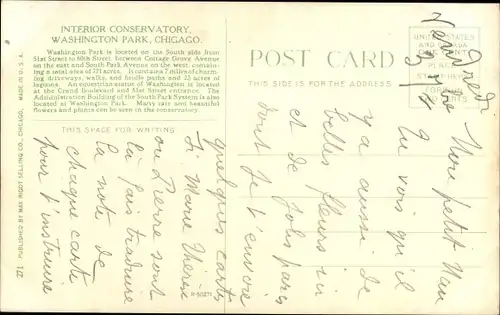 INTERIOR CONSERVATORY,
WASHINGTON PARK, CHICAGO.
Washington Park is located on the South side from
51st Street to 60th Street, between Cottage Grove Avenue
on the east and South Park Avenue on the west, contain-
ing a total area of 371 acres. It contains 7 miles of charm-
ing driveways, walks, and bridle paths and 23 acres of
lagoons. An equestrian statue of Washington is located
at the Grand Boulevard and 51st Street entrance. The
Administration Building of the South Park System is also
located at Washington Park. Many rare and beautiful
flowers and plants can be seen in the conservatory.
THIS SPACE FOR WRITING
POST CARD
THIS SIDE IS FOR THE ADDRESS
UNITED STATES
AND CANADA
PLACE
STAMP HERE
FOREIGN
CENTS
Vendredi
Mon petit
Tu vois qu'il
y a aussi de
belles fleurs ici
et de jolis parcs
dont je t'envoie
quelques cartes
Si Marie Thérèse
ou Pierre sont
là fais traduire
la note de
chaque carte
pour t'instruire
PUBLISHED BY MAX RIGOT SELLING CO., CHICAGO,
MADE IN U. S. A.
177